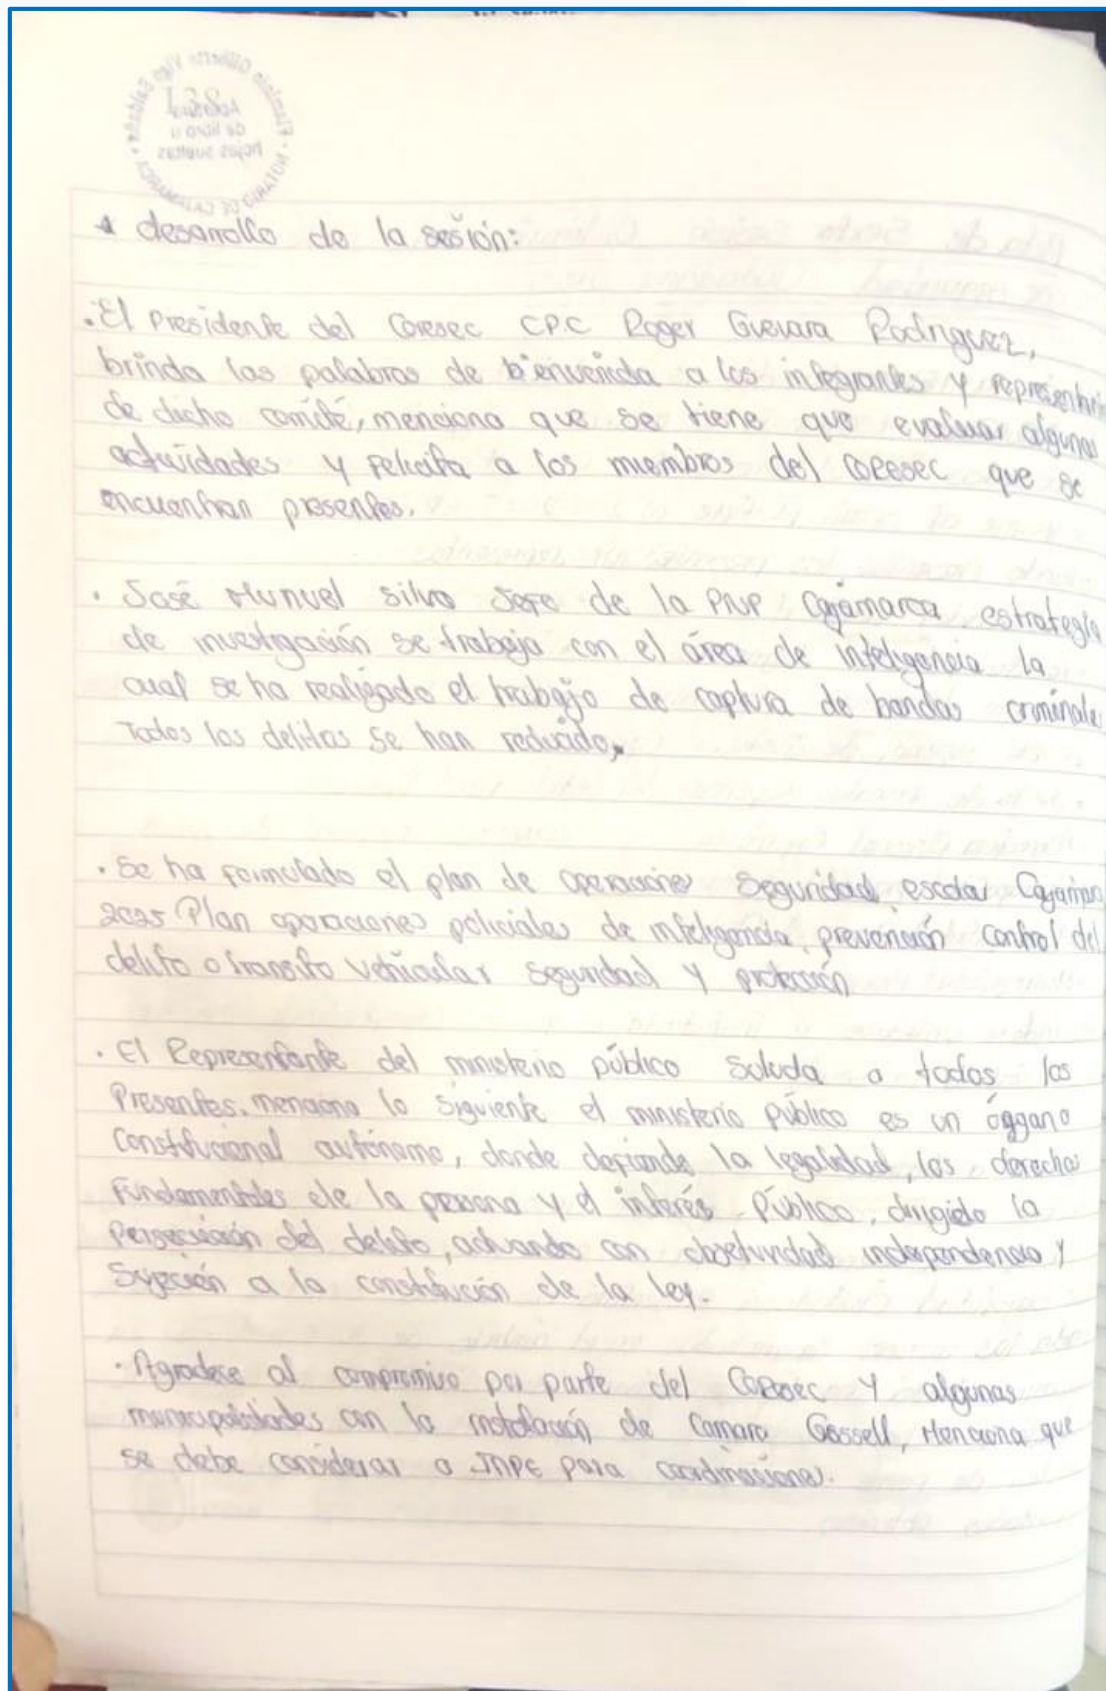 desarrollo de la sesión:
. El Presidente del Coresec CPC Roger Guevara Rodriguez,
brinda las palabras de bienvenida a los integrantes y
de dicho comité, menciona que se tiene que evaluar algunas
actividades y felicita a los miembros del Coresec que se
encuentran presentes.
. José Munuel silva Jefe de la PNP Cajamarca estrategia
de investigación se trabaja con el área de inteligencia la
cual se ha realizado el trabajo de captura de bandas criminales
Todos los delitos se han reducido.
. Se ha formulado el plan de operaciones Seguridad escolar
2025 Plan operaciones policiales de inteligencia, prevención control del
delito o transito vehicular seguridad y protección
. El Representante del ministerio público Saluda a todos los
Presentes. menciona lo siguiente el ministerio Público es un óggano
Constitucional autónomo, donde defiende la legalidad, los derechos
Fundamentales de la persona y el interés Público, dirigido la
Persecución del delito, actuando con objetividad independencia y
Sujeción a la constitución de la ley.
. Agradece al compromiso por parte del Coresec y algunas
municipalidades con la instalación de Camara Gessell, Menciona que
se debe considerar a INPE para coordinaciones.